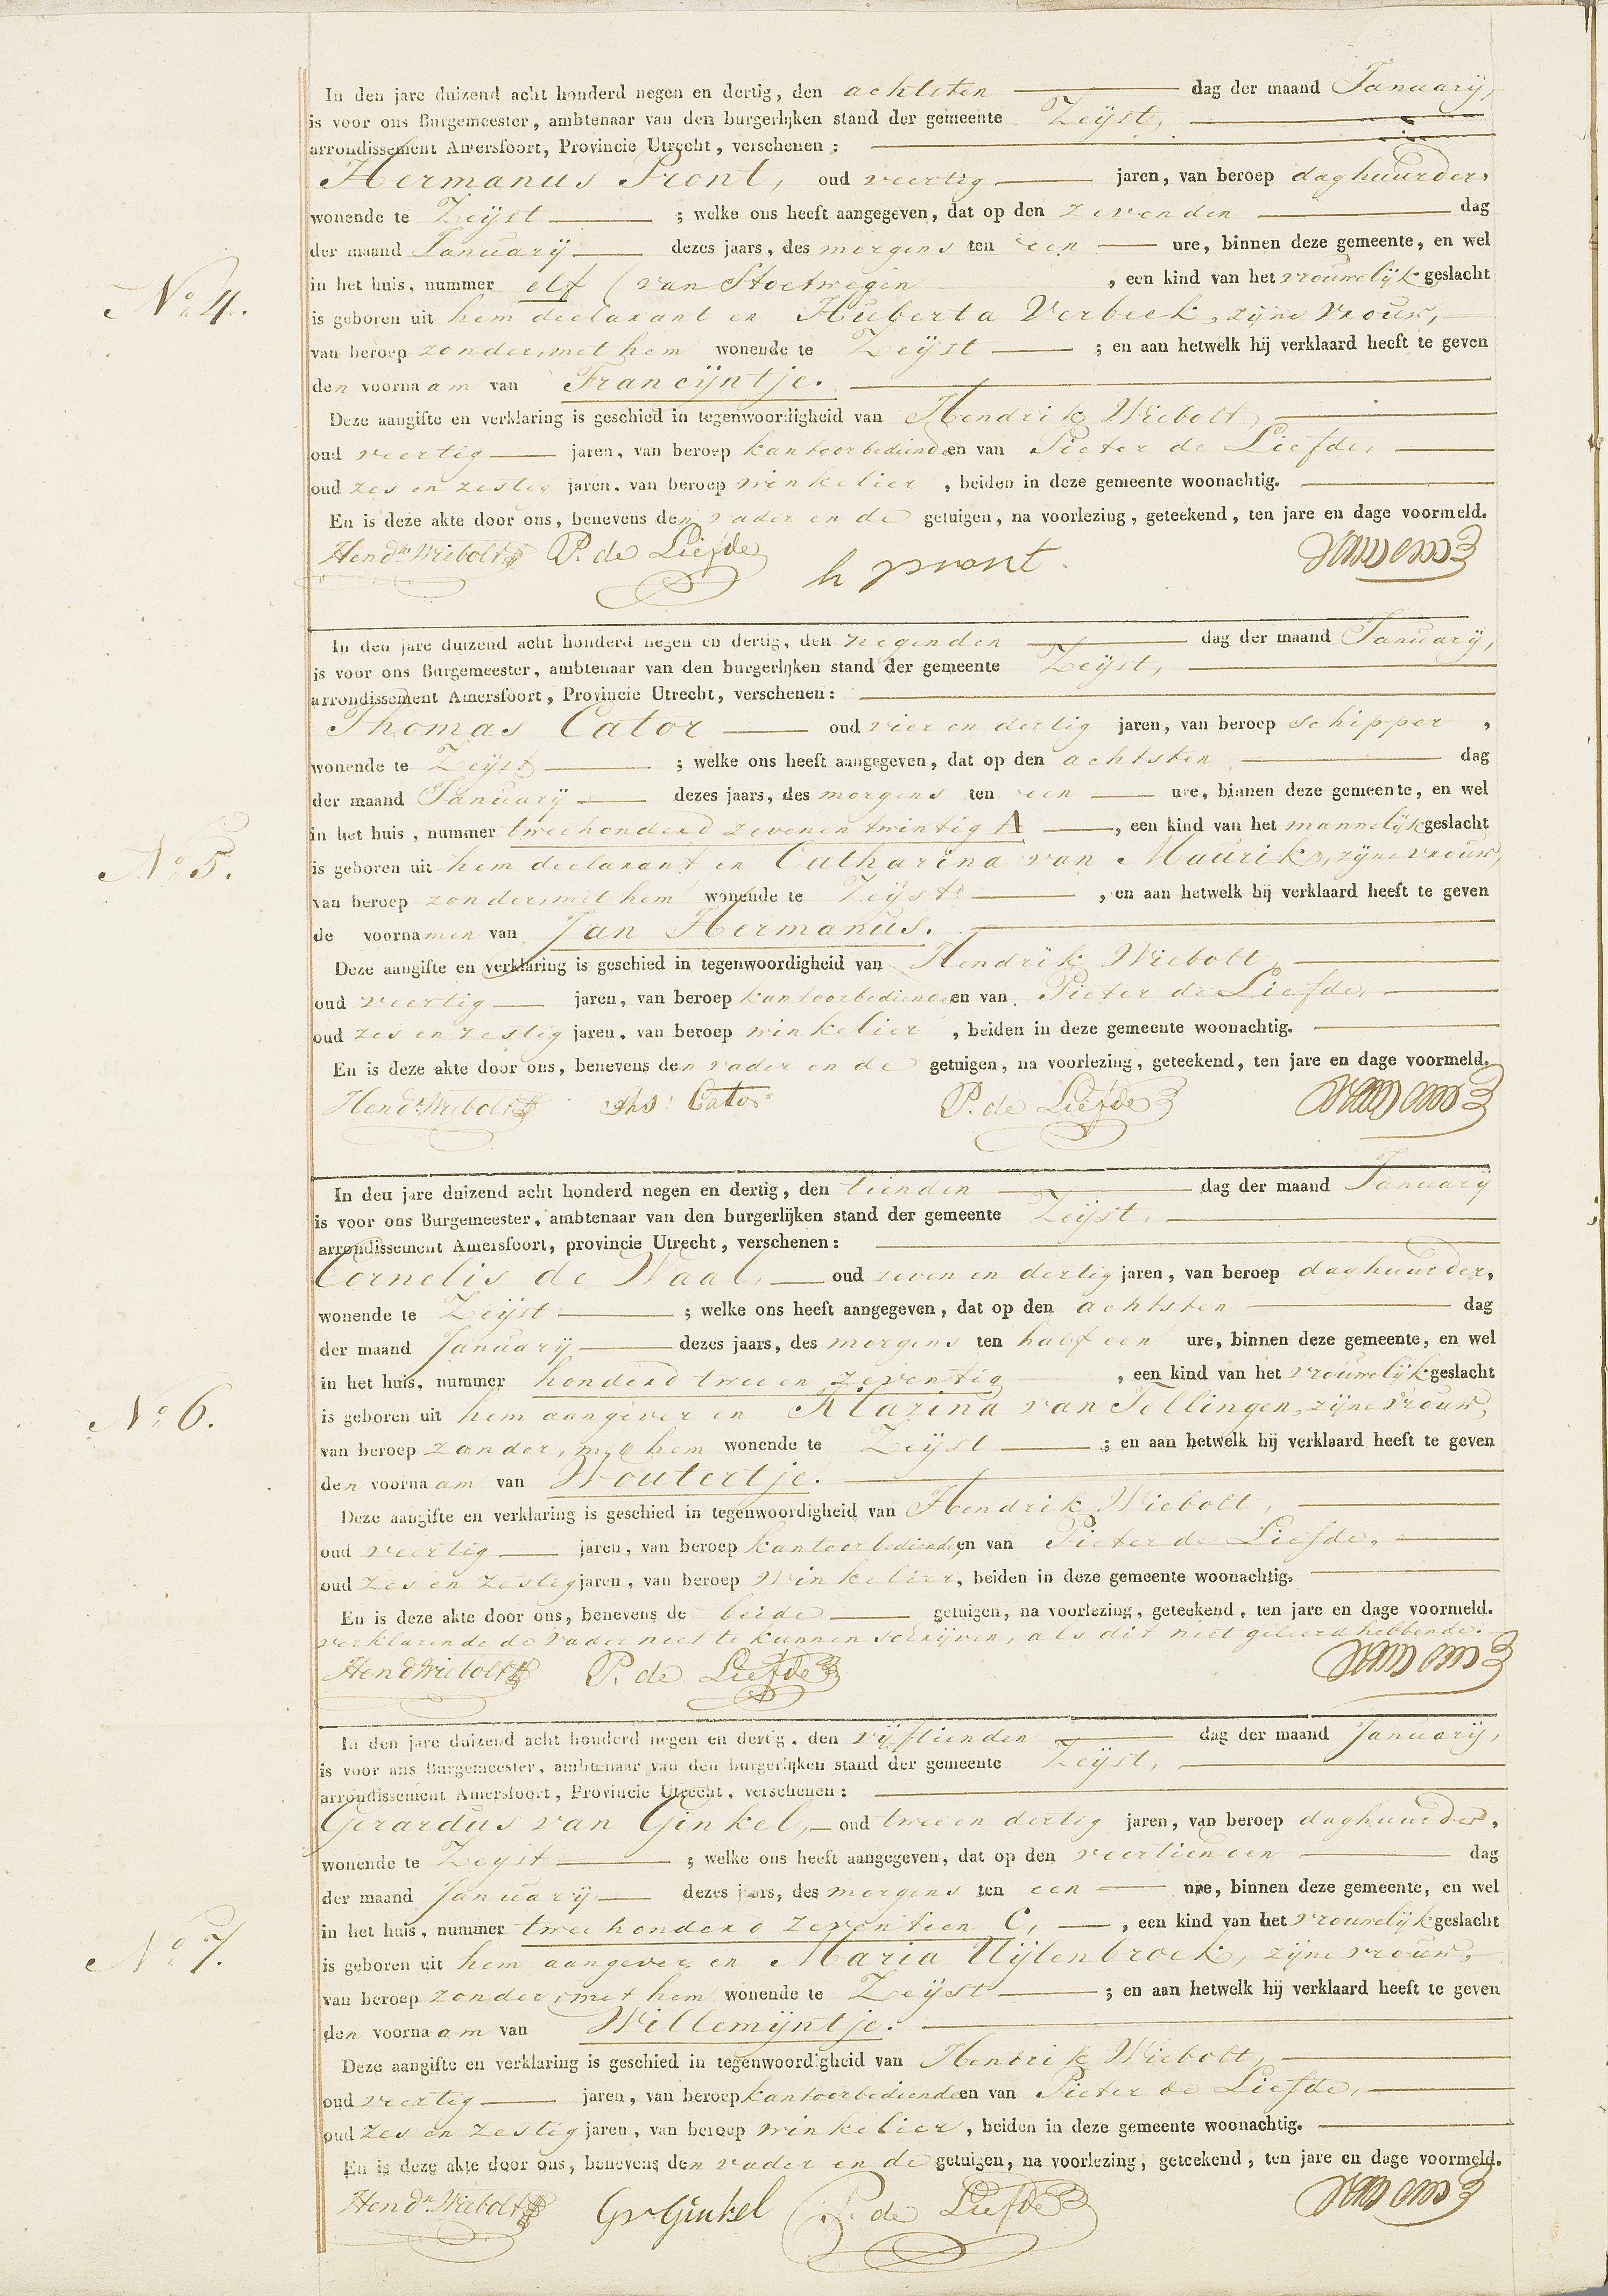 In den jare duizend acht honderd negen en dertig, den achtsten dag der maand January,
is voor ons Burgemeester, ambtenaar van den burgerlijken stand der gemeente Zeijst,
arrondissement Amersfoort, Provincie Utrecht, verschenen:
Hermanus Pront, oud veertig jaren, van beroep daghuurder,
wonende te Zeijst ; welke ons heeft aangegeven, dat op den zevenden dag
der maand January dezes jaars, des morgens ten een ure, binnen deze gemeente, en wel
No 4.
in het huis, nummer elf (van Stoetwegen , een kind van het vrouwelijk geslacht
is geboren uit hem declarant en Huberta Verbeek, zijne Vrouw,
van beroep zonder, met hem wonende te Zeijst ; en aan hetwelk hij verklaard heeft te geven
den voornaam van Francijntje.
Deze aangifte en verklaring is geschied in tegenwoordigheid van Hendrik Wiebolt,
oud veertig jaren, van beroep kantoorbediende en van Pieter de Liefde,
oud zes en zestig jaren, van beroep winkelier , beiden in deze gemeente woonachtig.
En is deze akte door ons, benevens den vader en de getuigen, na voorlezing, geteekend, ten jare en dage voormeld.
Hendk Wiebolt P. de Liefde h pront
In den jare duizend acht honderd negen en dertig, den negenden dag der maand January,
is voor ons Burgemeester, ambtenaar van den burgerlijken stand der gemeente Zeijst,
arrondissement Amersfoort, Provincie Utrecht, verschenen:
Thomas Cator oud vier en dertig jaren, van beroep schipper ,
wonende te Zeijst ; welke ons heeft aangegeven, dat op den achtsten dag
der maand January dezes jaars, des morgens ten een ure, binnen deze gemeente, en wel
in het huis, nummer tweehonderd zevenentwintig A , een kind van het mannelijk geslacht
No 5.
is geboren uit hem declarant en Catharina van Maurik, zijne vrouw,
van beroep zonder, met hem wonende te Zeijst , en aan hetwelk hij verklaard heeft te geven
de voornamen van Jan Hermanus.
Deze aangifte en verklaring is geschied in tegenwoordigheid van Hendrik Wiebolt,
oud veertig jaren, van beroep kantoorbediende en van Pieter de Liefde,
oud zes en zestig jaren, van beroep winkelier , beiden in deze gemeente woonachtig.
En is deze akte door ons, benevens den vader en de getuigen, na voorlezing, geteekend, ten jare en dage voormeld.
Hendk Wiebolt Ths Cator P. de Liefde
In den jare duizend acht honderd negen en dertig, den tienden dag der maand January
is voor ons Burgemeester, ambtenaar van den burgerlijken stand der gemeente Zeijst,
arrondissement Amersfoort, provincie Utrecht, verschenen:
Cornelis de Waal, oud zeven en dertig jaren, van beroep daghuurder,
wonende te Zeijst ; welke ons heeft aangegeven, dat op den achtsten dag
der maand January dezes jaars, des morgens ten half een ure, binnen deze gemeente, en wel
in het huis, nummer honderd twee en zeventig , een kind van het vrouwelijk geslacht
No 6.
is geboren uit hem aangever en Klazina van Tellingen, zijne vrouw,
van beroep zonder, met hem wonende te Zeijst ; en aan hetwelk hij verklaard heeft te geven
den voornaam van Woutertje.
Deze aangifte en verklaring is geschied in tegenwoordigheid van Hendrik Wiebolt,
oud veertig jaren, van beroep kantoorbediende en van Pieter de Liefde,
oud zes en zestig jaren, van beroep Winkelier, beiden in deze gemeente woonachtig.
En is deze akte door ons, benevens de beide getuigen, na voorlezing, geteekend, ten jare en dage voormeld.
verklarende de Vader niet te kunnen schrijven, als dit niet geleerd hebbende.
Hend Wiebolt P. de Liefde
In den jare duizend acht honderd negen en dertig, den vijftienden dag der maand January,
is voor ons Burgemeester, ambtenaar van den burgerlijken stand der gemeente Zeijst,
arrondissement Amersfoort, Provincie Utrecht, verschenen:
Gerardus van Ginkel, oud twee en dertig jaren, van beroep daghuurder,
wonende te Zeijst ; welke ons heeft aangegeven, dat op den veertienden dag
der maand January dezes jaars, des morgens ten een ure, binnen deze gemeente, en wel
in het huis, nummer tweehonderd zeventien C, , een kind van het vrouwelijk geslacht
No 7.
is geboren uit hem aangever en Maria Uijlenbroek, zijne vrouw,
van beroep zonder, met hem wonende te Zeijst ; en aan hetwelk hij verklaard heeft te geven
den voornaam van Willemijntje.
Deze aangifte en verklaring is geschied in tegenwoordigheid van Hendrik Wiebolt,
oud veertig jaren, van beroep kantoorbediende en van Pieter de Liefde,
oud zes en zestig jaren, van beroep winkelier, beiden in deze gemeente woonachtig.
En is deze akte door ons, benevens den vader en de getuigen, na voorlezing, geteekend, ten jare en dage voormeld.
Hendk Wiebolt G v Ginkel P. de Liefde